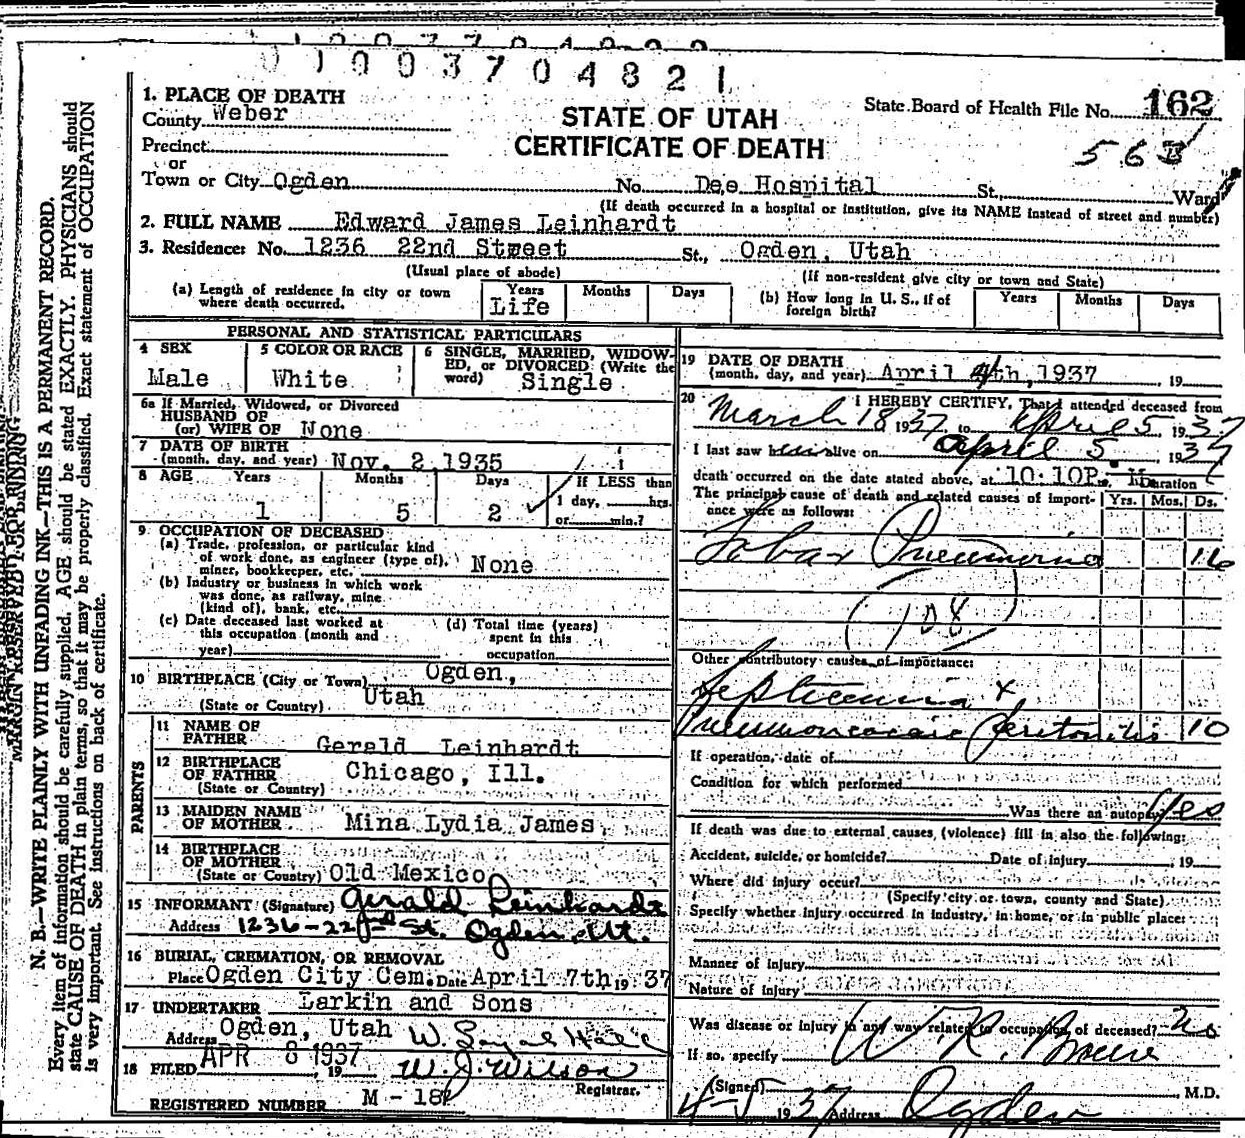 01003704821
1. PLACE OF DEATH
County Weber
STATE OF UTAH
CERTIFICATE OF DEATH
State Board of Health File No. 162
563
Precinct
or
Town or City Ogden No. Dee Hospital St., Ward
(If death occurred in a hospital or institution, give its NAME instead of street and number)
2. FULL NAME Edward James Leinhardt
3. Residence: No. 1236 22nd Street St., Ogden, Utah
(Usual place of abode) (If non-resident give city or town and State)
(a) Length of residence in city or town where death occurred. Years Months Days
Life
(b) How long in U. S., if of foreign birth? Years Months Days
PERSONAL AND STATISTICAL PARTICULARS
4 SEX
Male
5 COLOR OR RACE
White
6 SINGLE, MARRIED, WIDOW-
ED, or DIVORCED (Write the
word) Single
6a If Married, Widowed, or Divorced
HUSBAND OF
(or) WIFE OF None
7 DATE OF BIRTH
(month, day, and year) Nov. 2, 1935
8 AGE Years Months Days If LESS than
1 5 2 1 day, hrs.
or min.?
9 OCCUPATION OF DECEASED
(a) Trade, profession, or particular kind
of work done, as engineer (type of),
miner, bookkeeper, etc. None
(b) Industry or business in which work
was done, as railway, mine
(kind of), bank, etc.
(c) Date deceased last worked at
this occupation (month and
year)
(d) Total time (years)
spent in this
occupation
10 BIRTHPLACE (City or Town) Ogden,
(State or Country) Utah
PARENTS
11 NAME OF
FATHER Gerald Leinhardt
12 BIRTHPLACE
OF FATHER Chicago, Ill.
(State or Country)
13 MAIDEN NAME
OF MOTHER Mina Lydia James
14 BIRTHPLACE
OF MOTHER
(State or Country) Old Mexico
15 INFORMANT (Signature) Gerald Leinhardt
Address 1236-22nd St. Ogden, Ut.
16 BURIAL, CREMATION, OR REMOVAL
Place Ogden City Cem. Date April 7th 19 37
17 UNDERTAKER Larkin and Sons
Address Ogden, Utah
18 FILED APR 8 1937, 19 W. J. Wilson
Registrar.
REGISTERED NUMBER M - 18
19 DATE OF DEATH
(month, day, and year) April 4th, 1937, 19
20 I HEREBY CERTIFY, That I attended deceased from
March 18 1937 to April 5 1937
I last saw alive on April 5 1937
death occurred on the date stated above, at 10:10P. M.
Duration
The principal cause of death and related causes of import-
ance were as follows: Yrs. Mos. Ds.
Lobar Pneumonia 16
(108)
Other contributory causes of importance:
Septicemia +
Pneumococcic Peritonitis 10
If operation, date of
Condition for which performed
Was there an autopsy Yes
If death was due to external causes, (violence) fill in also the following:
Accident, suicide, or homicide? Date of injury , 19
Where did injury occur?
(Specify city or town, county and State)
Specify whether injury occurred in industry, in home, or in public place:
Manner of injury
Nature of injury
Was disease or injury in any way related to occupation of deceased? No
If so, specify
(Signed) W. R. M.D.
4-5 1937 Address Ogden
N. B.—WRITE PLAINLY WITH UNFADING INK—THIS IS A PERMANENT RECORD.
Every item of information should be carefully supplied. AGE should be stated EXACTLY. PHYSICIANS should
state CAUSE OF DEATH in plain terms, so that it may be properly classified. Exact statement of OCCUPATION
is very important. See instructions on back of certificate.
MARGIN RESERVED FOR BINDING